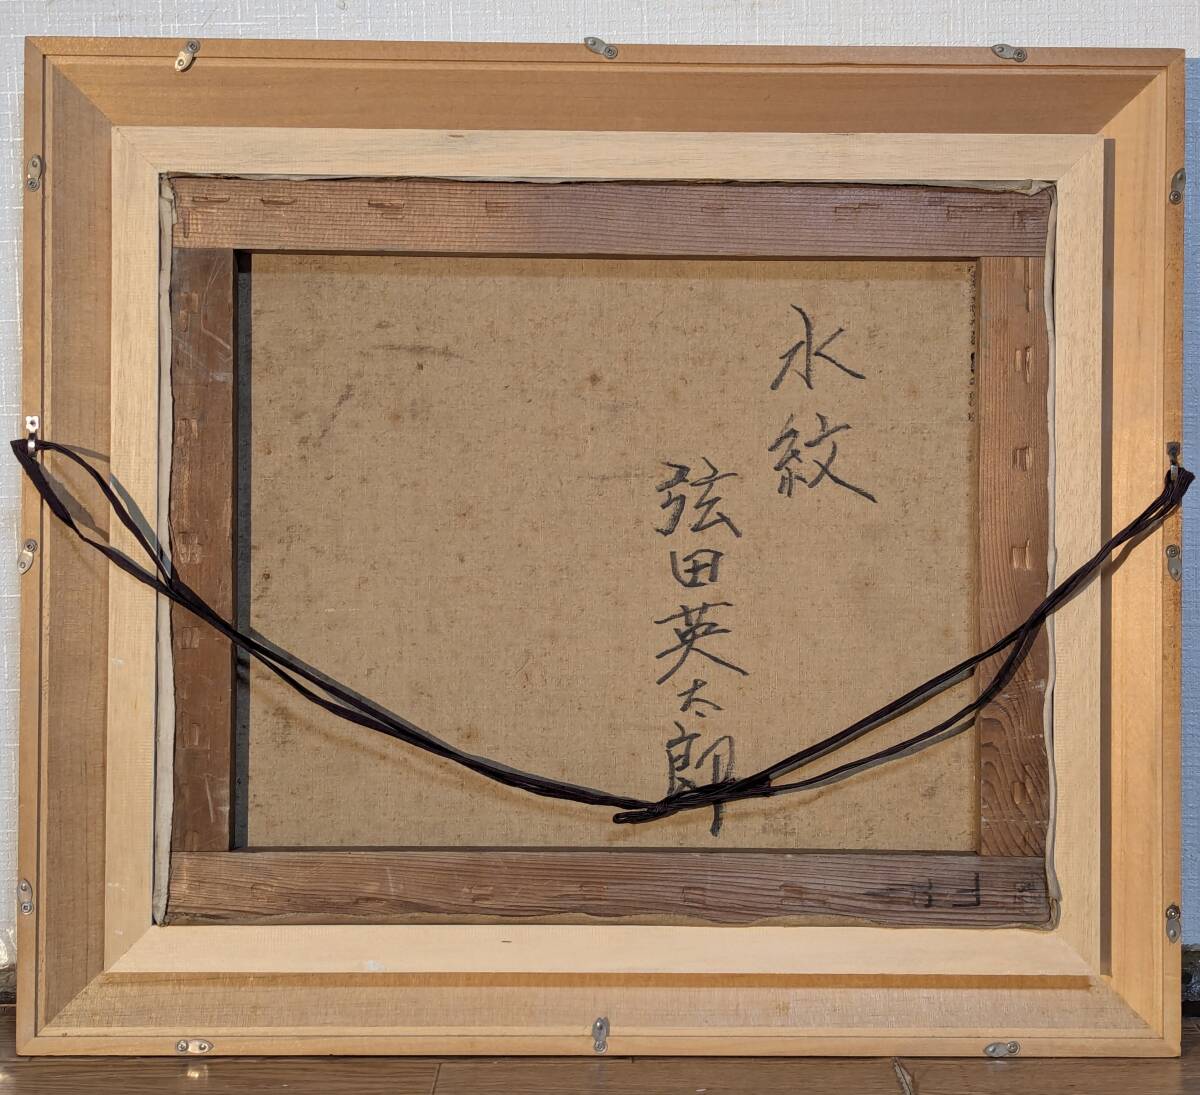 水紋
弦田英太郎